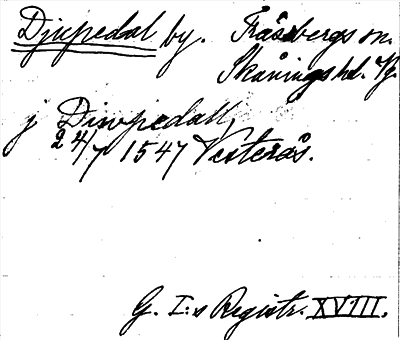 Djupedal by. Fråsbergs sn.
Skånings hd. Vg.
j Diwpedall,
24/7 1547 Vesterås.
G. I:s Registr. XVIII.